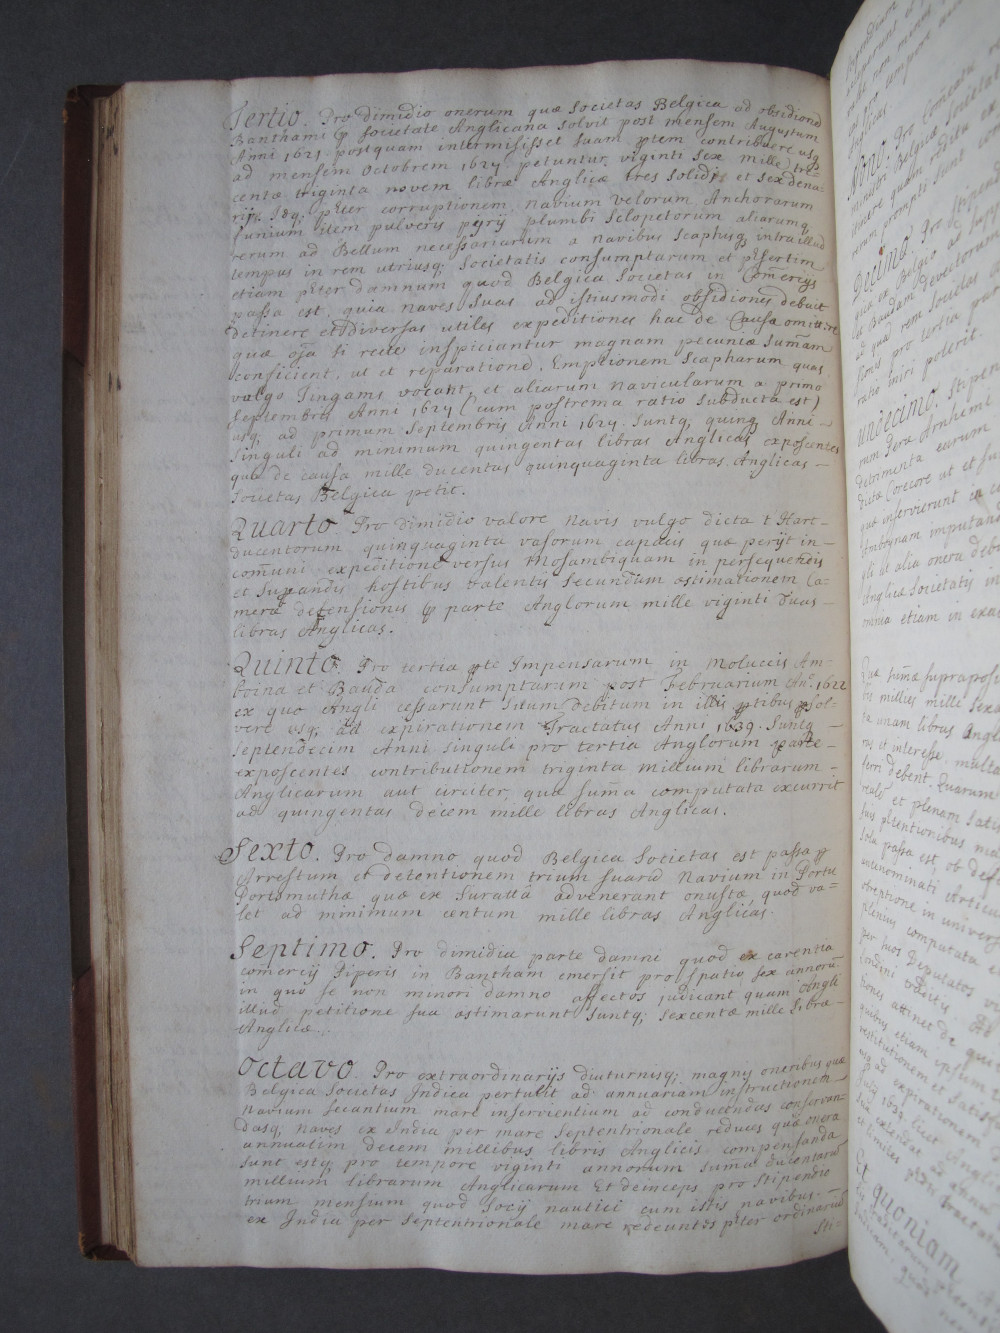 Tertio. Pro dimidio onerum quæ Societas Belgica ad obsidiond
Banthami ꝑ societate Anglicana solvit post mensem Augustum
Anni 1621. postquam intermisisset suam ꝑtem contribuere usq
ad mensem Octobrem 1624 petuntur viginti sex mille tre=
centæ triginta novem libræ Anglicæ tres solidj et sex dena=
rij. Idq; pter corruptionem navium velorum Anchorarum
funium item pulveris pyrij plumbi sclopetorum aliarumq
rerum ad Bellum necessariarum a navibus scaphusq intra illud
tempus in rem utriusq; Societatis consumptarum et ptsertim
etiam pter damnum quod Belgica Societas in Comercijs
passa est, quia naves suas ad istiusmodi obsidiones debuit
detinere et diversas utiles expeditiones hac de Causa omittere
quæ oja si recte inspiciantur magnam pecuniæ sumam
conficient, ut et reparationd. Emptionem Scapharum quas
vulgo Tingams vocant, et aliarum navicularum a primo
Septembris Anni 1624 (cum postrema ratio subducta est)
usq, ad primum Septembris Anni 1624. Suntq, quinq Anni –
singuli ad minimum quingentas libras Anglicas exposcentes
qua de causa mille ducentas quinquaginta libras Anglicas –
Societas Belgica petit.
Quarto. Pro dimidio valore navis vulgo dicta t Hart –
ducentorum quinquaginta vasorum capacis quæ perijt in –
comuni expeditione versus Mosambiquam in persequendis
et supandis hostibus valentis secundum æstimationem Ca=
meræ defensionis ꝑ parte Anglorum mille viginti duas –
libras Anglicas.
Quinto. Pro tertia ꝑte Impensarum in Moluccis Am=
boina et Banda consumptarum post Februarium Anº. 1622
ex quo Angli cessarunt suum debitum in illis ꝑtibus ꝑsol=
vere usq; ad expirationem Tractatus Anni 1639. Suntq –
Septendecim Anni singuli pro tertia Anglorum parte –
exposcentes contributionem triginta millium librarum –
Anglicarum aut circiter, quæ suma computata excurrit
ad quingentas decem mille libras Anglicas.
Sexto. Pro damno quod Belgica Societas est passa ꝑ
Arrestum et detentionem trium suard Navium in Portu
Portsmuthæ quæ ex Suratta advenerant onustæ, quod va=
let ad minimum centum mille libras Anglicas.
Septimo. Pro dimidia parte damni quod ex carentia
comercij Piperis in Bantham emersit pro spatio sex annorū
in quo se non minori damno affectos judicant quam Angli
illud petitione sua æstimarunt suntq; sexcentæ mille libræ –
Anglicæ.
Octavo. Pro extraordinarijs diuturnisq; magnis oneribus quæ
Belgica Societas Indica pertulit ad annuariam instructionem –
navium secantium mare inservientium ad conducendas conservan=
dasq; naves ex India per mare Septentrionale reduces quæ onera
annuatim decem millibus libris Anglicis compensanda
sunt estq; pro tempore viginti annorum suma ducentarū
millium librarum Anglicarum Et deinceps pro Stipendio
trium mensium quod Socij nautici cum istis navibus
ex India per Septentrionale mare redeuntes pter ordinariū
Sti=
Nono. Pro Comeatu
ministri Belgicæ Societat
itinere quum reditu ex
rerum prompti sunt con
Decima. Pro Stipend
gica ex Belgio ad supp
et Bandam devectorum
ac qua rem Societas
ratio iniri poterit.
undecimo. Stipen
detrimenta earum
quæ inservierunt in
Amboynam imputand
Anglicæ Societatis in
omnia etiam in exa
Quæ sumæ supraposit
Et quoniam